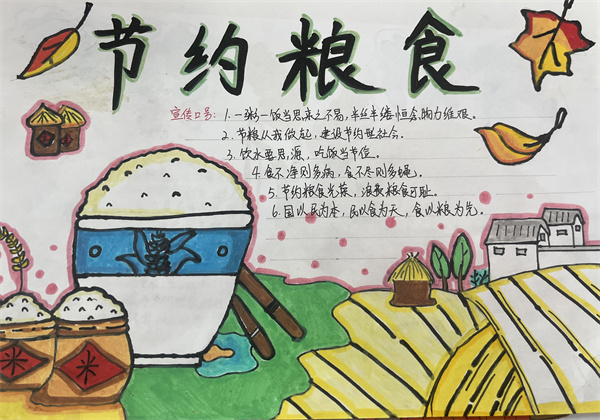 节约粮食
宣传口号：1.一粥一饭当思来之不易，半丝半缕恒念物力维艰。
2.节粮从我做起，建设节约型社会。
3.饮水要思源，吃饭当节俭。
4.食不净则多病，食不尽则多蝇。
5.节约粮食光荣，浪费粮食可耻。
6.国以民为本，民以食为天，食以粮为先。
米
米